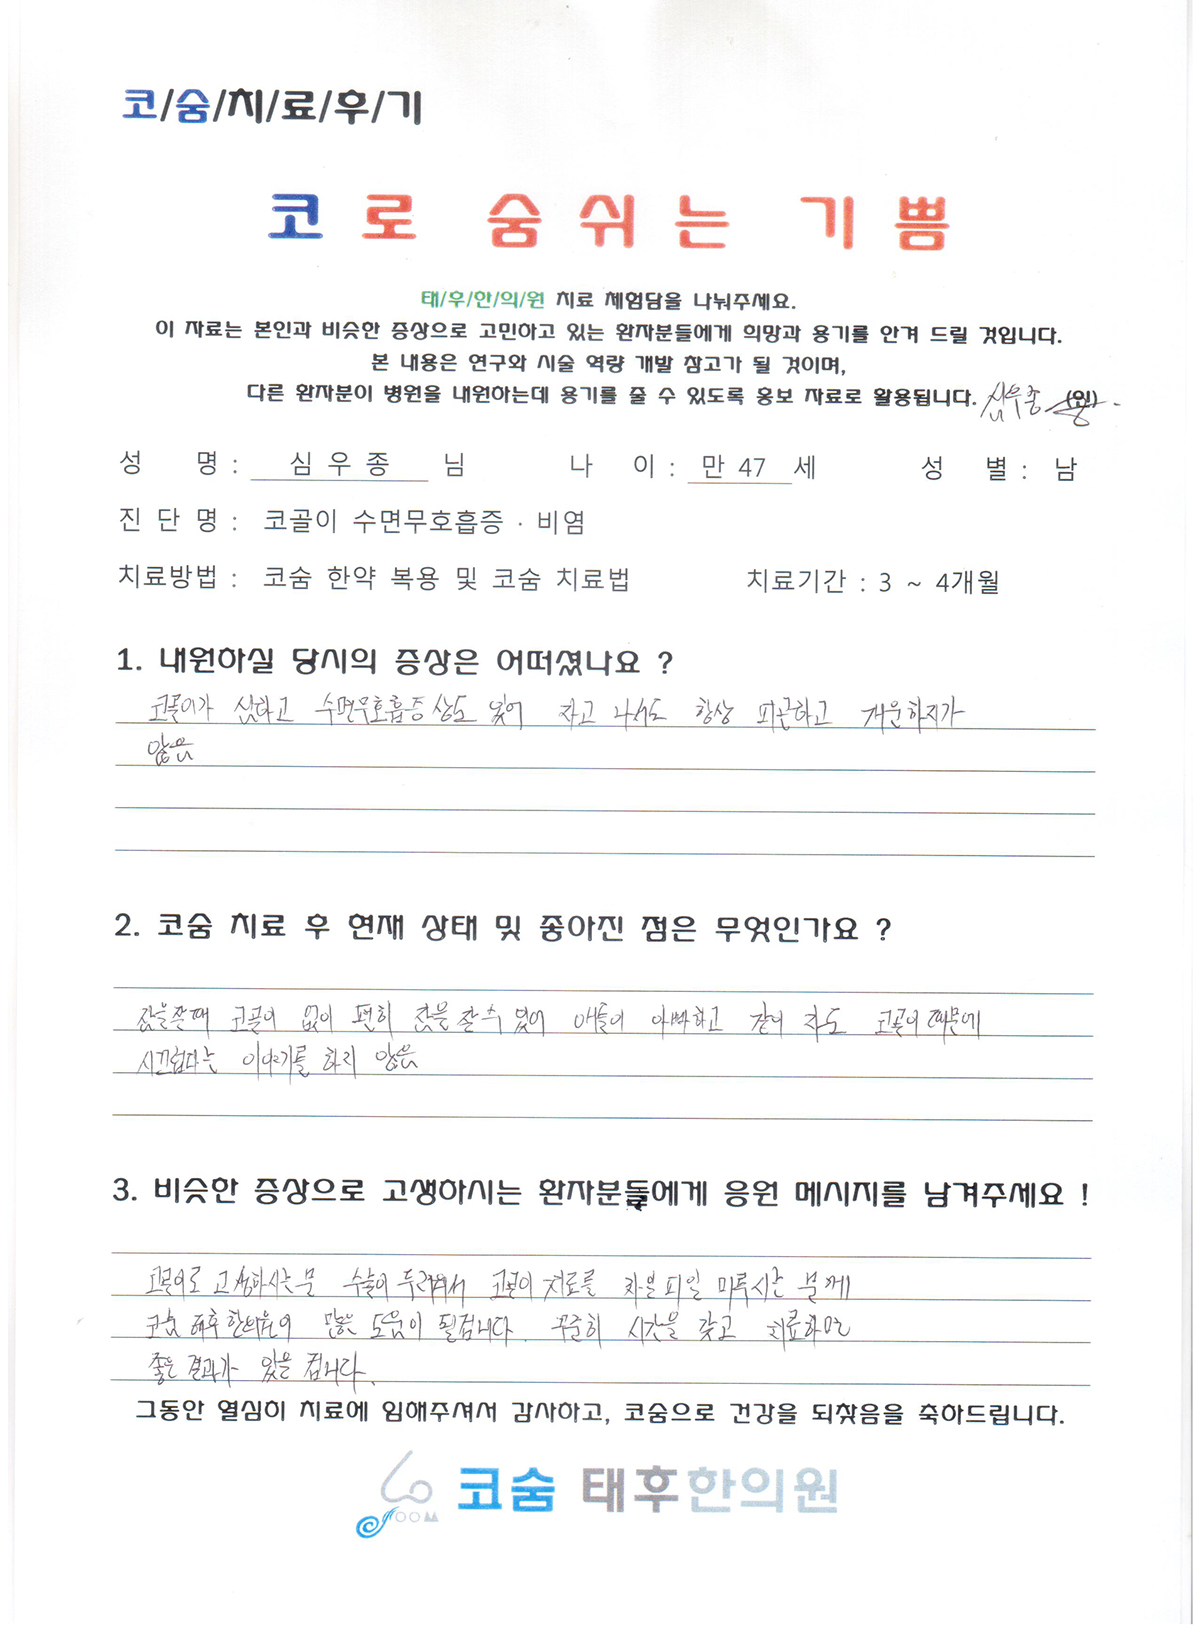 코/숨/치/료/후/기
코로 숨쉬는 기쁨
태/후/한/의/원 치료 체험담을 나눠주세요.
이 자료는 본인과 비슷한 증상으로 고민하고 있는 환자분들에게 희망과 용기를 안겨 드릴 것입니다.
본 내용은 연구와 시술 역량 개발 참고가 될 것이며,
다른 환자분이 병원을 내원하는데 용기를 줄 수 있도록 홍보 자료로 활용됩니다. 심우종 (인)
성 명 : 심 우 종 님 나 이 : 만 47 세 성 별 : 남
진 단 명 : 코골이 수면무호흡증 · 비염
치료방법 : 코숨 한약 복용 및 코숨 치료법 치료기간 : 3 ~ 4개월
1. 내원하실 당시의 증상은 어떠셨나요 ?
코골이가 심하고 수면무호흡증상도 있어 자고 나서도 항상 피곤하고 개운하지가
않음
2. 코숨 치료 후 현재 상태 및 좋아진 점은 무엇인가요 ?
잠을잘때 코골이 없이 편히 잠을 잘 수 있어 애들이 아빠하고 같이 자도 코골이 때문에
시끄럽다는 이야기를 하지 않음
3. 비슷한 증상으로 고생하시는 환자분들에게 응원 메시지를 남겨주세요 !
코골이로 고생하시는분 수술이 두려워서 코골이 치료를 차일피일 미루시는 분께
코숨 태후한의원이 많은 도움이 될겁니다. 꾸준히 시간을 갖고 치료하면
좋은 결과가 있을 겁니다.
그동안 열심히 치료에 임해주셔서 감사하고, 코숨으로 건강을 되찾음을 축하드립니다.
코숨 태후한의원